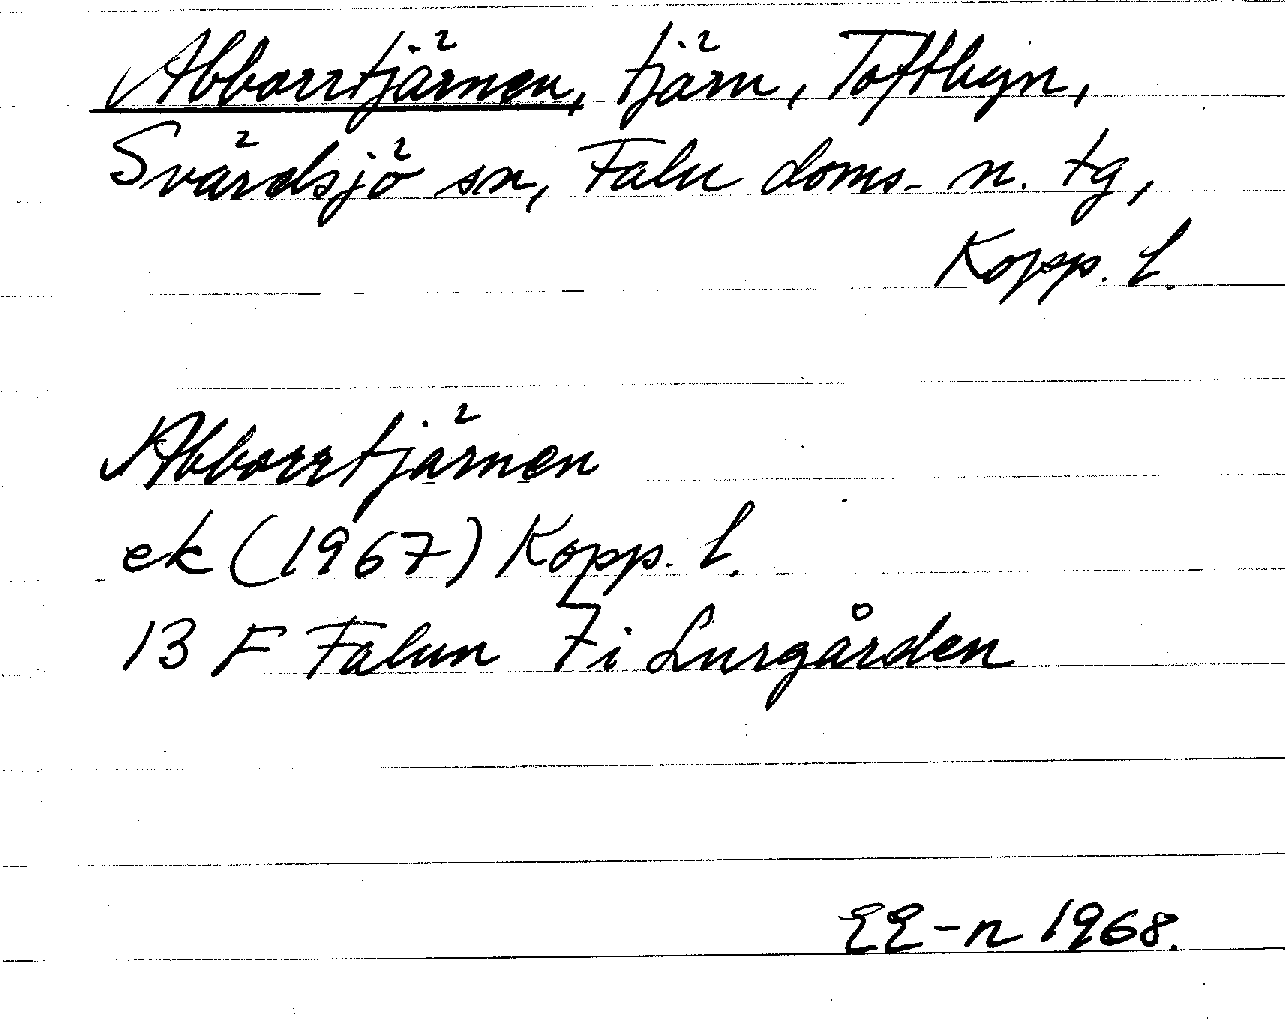 Abborrtjärnen, tjärn, Toftbyn,
Svärdsjö sn, Falu doms. n. tg,
Kopp. l.
Abborrtjärnen
ek (1967) Kopp. l.
13 F Falun 7i Lurgården
EE-n 1968.